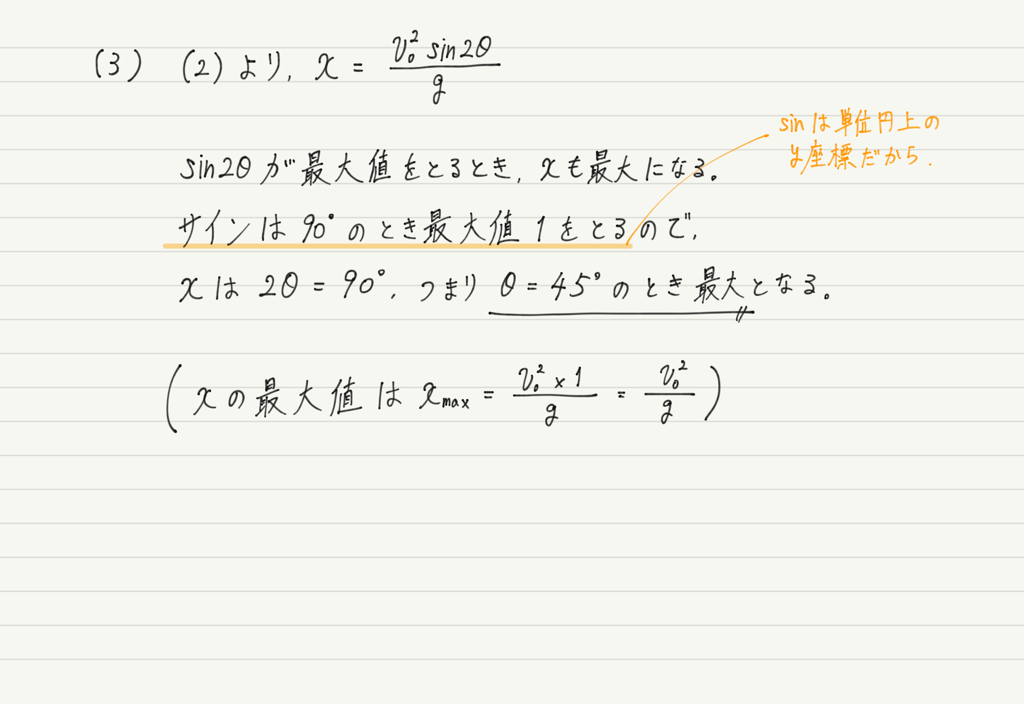 (3) (2)より, x = v₀² sin2θ / g
sinは単位円上の
y座標だから.
sin2θ が最大値をとるとき, xも最大になる。
サインは 90° のとき最大値 1 をとるので,
xは 2θ = 90°, つまり θ = 45° のとき最大となる。
( xの最大値は xmax = v₀² × 1 / g = v₀² / g )